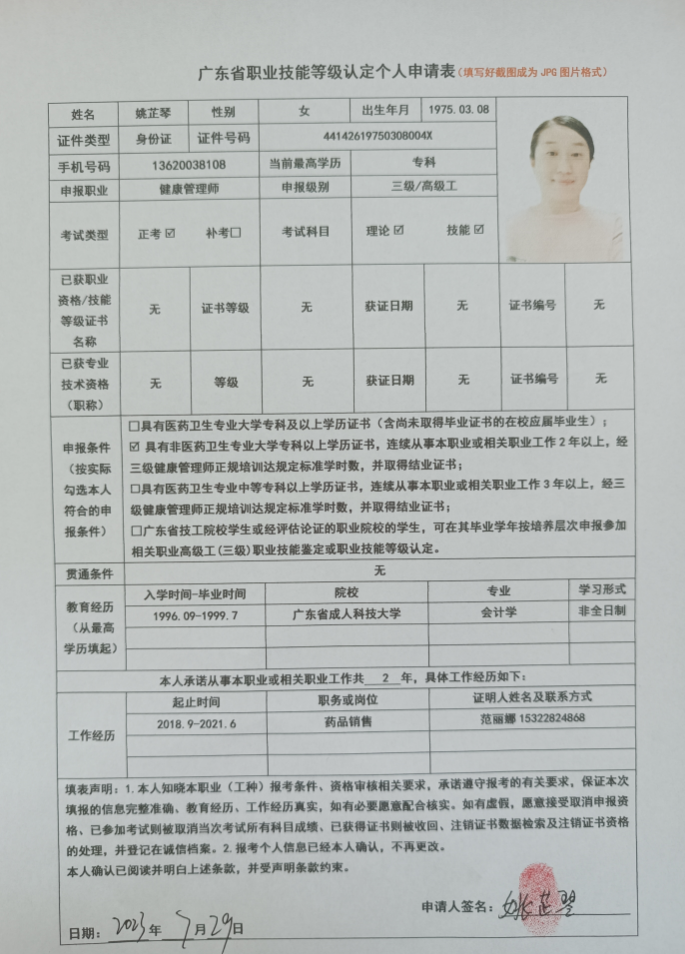 广东省职业技能等级认定个人申请表(填写好截图成为 JPG 图片格式)
姓名 姚芷琴 性别 女 出生年月 1975.03.08
证件类型 身份证 证件号码 44142619750308004X
手机号码 13620038108 当前最高学历 专科
申报职业 健康管理师 申报级别 三级/高级工
考试类型 正考☑ 补考□ 考试科目 理论☑ 技能☑
已获职业
资格/技能
等级证书
名称
无 证书等级 无 获证日期 无 证书编号 无
已获专业
技术资格
(职称)
无 等级 无 获证日期 无 证书编号 无
申报条件
(按实际
勾选本人
符合的申
报条件)
□具有医药卫生专业大学专科及以上学历证书(含尚未取得毕业证书的在校应届毕业生);
☑ 具有非医药卫生专业大学专科以上学历证书，连续从事本职业或相关职业工作 2 年以上，经
三级健康管理师正规培训达规定标准学时数，并取得结业证书;
□具有医药卫生专业中等专科以上学历证书，连续从事本职业或相关职业工作 3 年以上，经三
级健康管理师正规培训达规定标准学时数，并取得结业证书;
□广东省技工院校学生或经评估论证的职业院校的学生，可在其毕业学年按培养层次申报参加
相关职业高级工(三级)职业技能鉴定或职业技能等级认定。
贯通条件 无
教育经历
(从最高
学历填起)
入学时间-毕业时间 院校 专业 学习形式
1996.09-1999.7 广东省成人科技大学 会计学 非全日制
本人承诺从事本职业或相关职业工作共 2 年，具体工作经历如下:
工作经历
起止时间 职务或岗位 证明人姓名及联系方式
2018.9-2021.6 药品销售 范丽娜 15322824868
填表声明: 1.本人知晓本职业(工种)报考条件、资格审核相关要求，承诺遵守报考的有关要求，保证本次
填报的信息完整准确、教育经历、工作经历真实，如有必要愿意配合核实。如有虚假，愿意接受取消申报资
格、已参加考试则被取消当次考试所有科目成绩、已获得证书则被收回、注销证书数据检索及注销证书资格
的处理，并登记在诚信档案。2.报考个人信息已经本人确认，不再更改。
本人确认已阅读并明白上述条款，并受声明条款约束。
申请人签名: 姚芷琴
日期: 2023 年 7 月 29 日